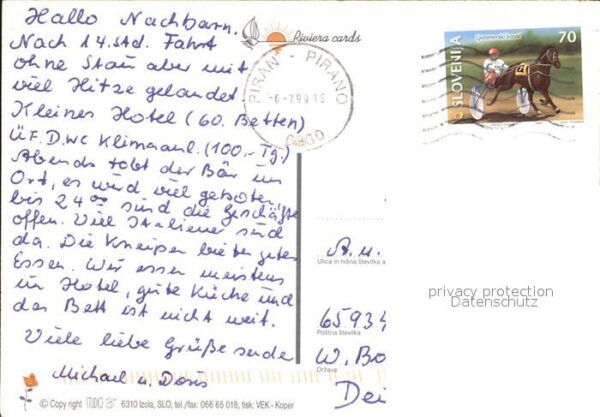 Hallo Nachbarn.
Nach 14.Std. Fahrt
ohne Stau aber mit
viel Hitze gelandet.
Kleines Hotel (60. Betten)
ÜF.D.WC Klimaanl. (100.- Tg.)
Abends tobt der Bär im
Ort, es wird viel geboten,
bis 24 00 sind die Geschäfte
offen. Viel Italiener sind
da. Die Kneipen bieten gutes
Essen. Wir essen meistens
im Hotel, gute Küche und
das Bett ist nicht weit.
Viele liebe Grüße sende
Michael u. Doris
© Copy right STUDIO 6310 Izola, SLO, tel./fax: 066 65 018, tisk: VEK - Koper
Riviera cards
PIRAN - PIRANO
-6-7.99-15
Ljutomerski kasač
70
SLOVENIJA
A. u.
Ulica in hišna številka
privacy protection
Datenschutz
65934
Poštna številka
W. Bo
Država